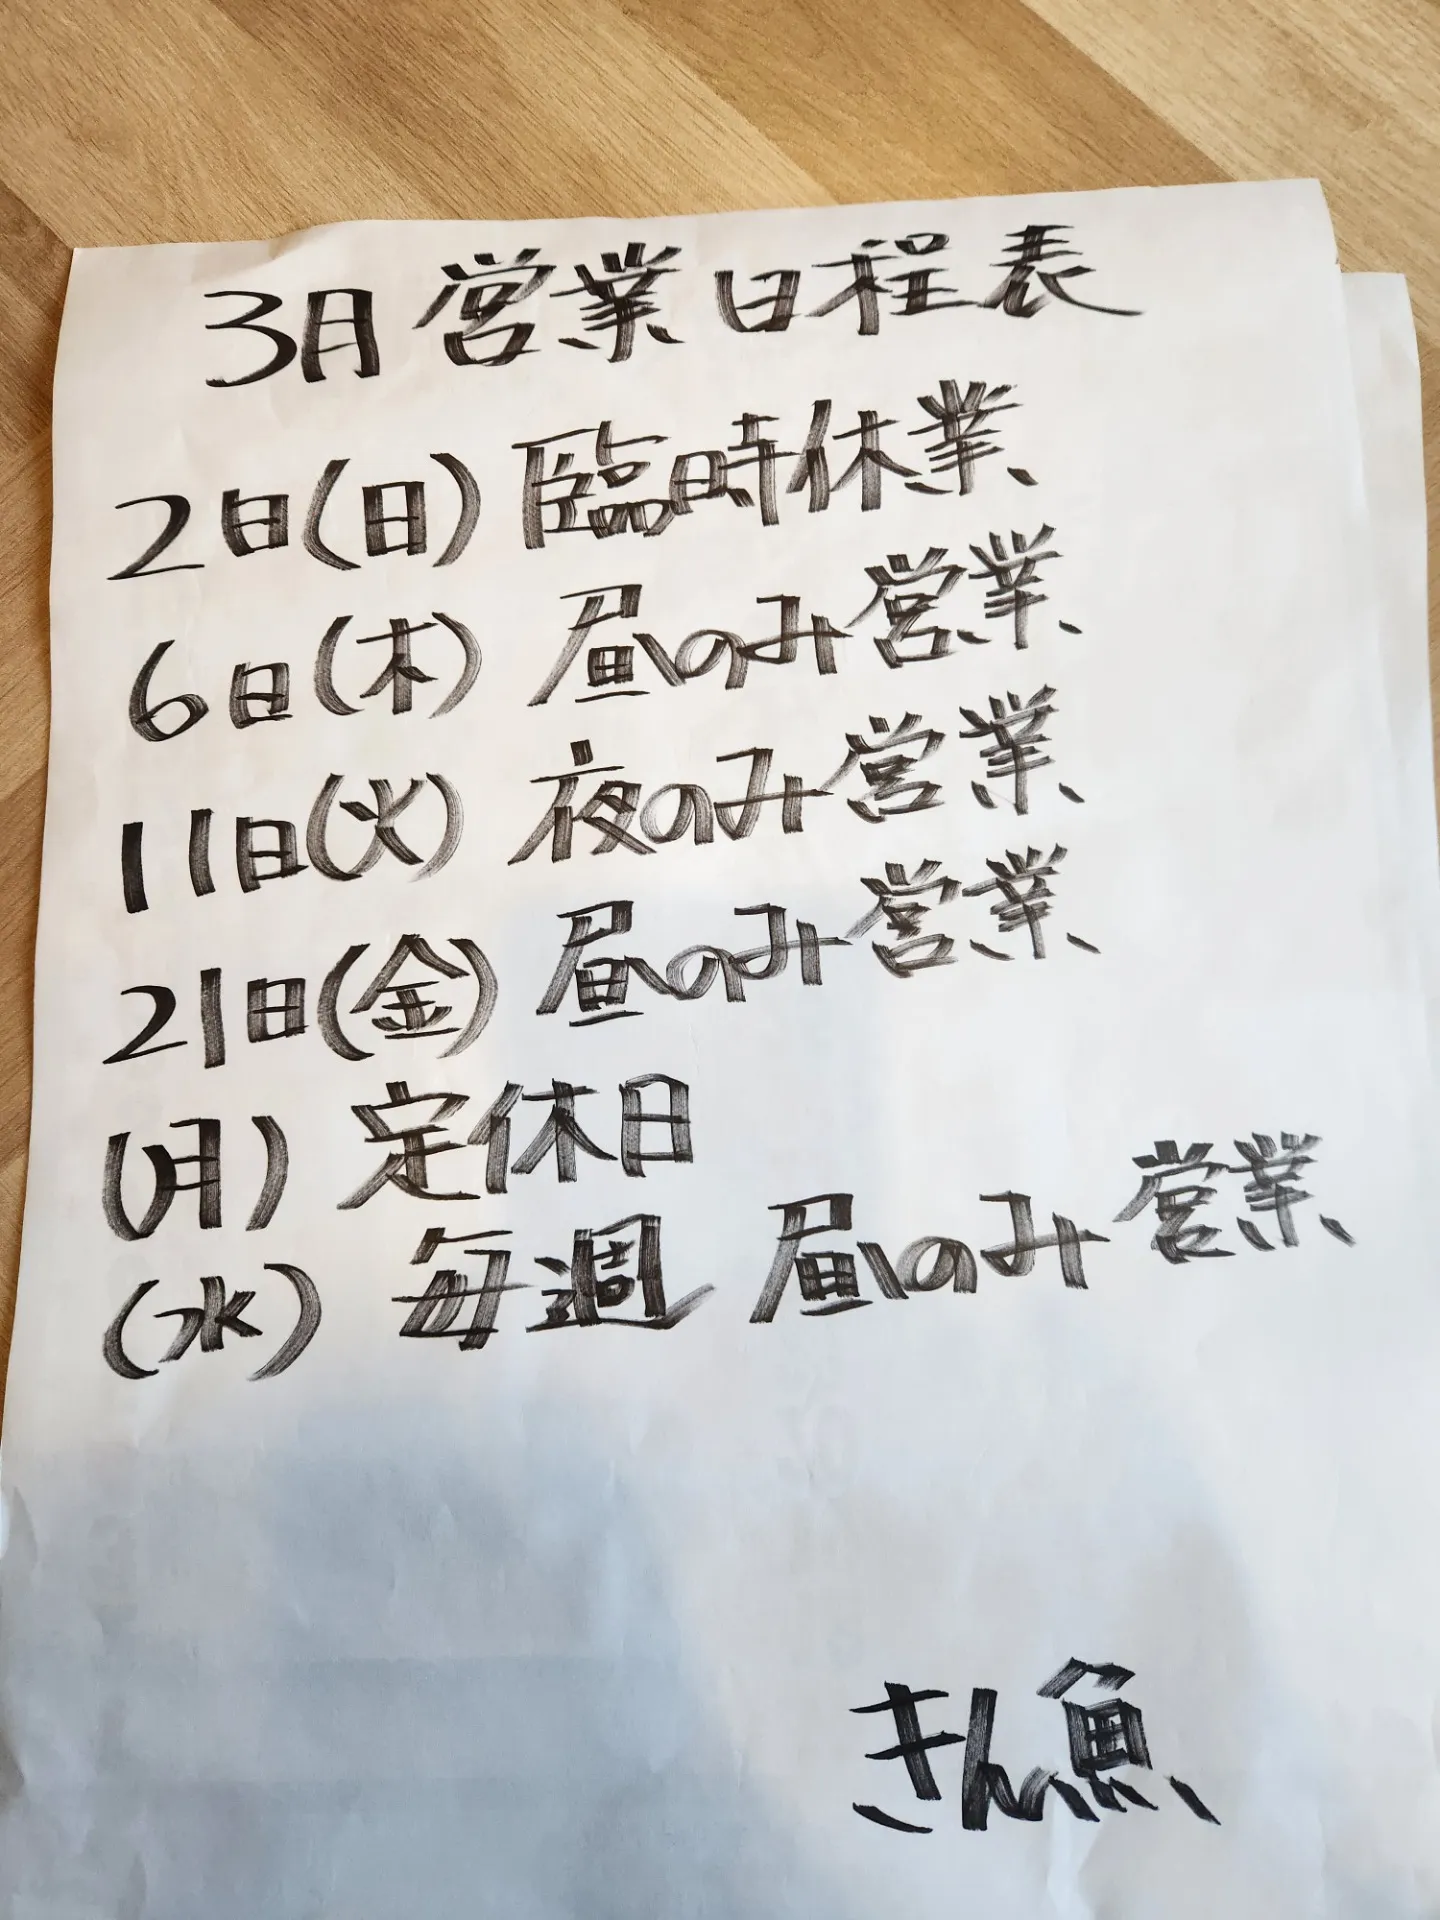 3月営業日程表
2日(日)臨時休業
6日(木)昼のみ営業
11日(火)夜のみ営業
21日(金)昼のみ営業
(月)定休日
(水)毎週 昼のみ営業
きん魚